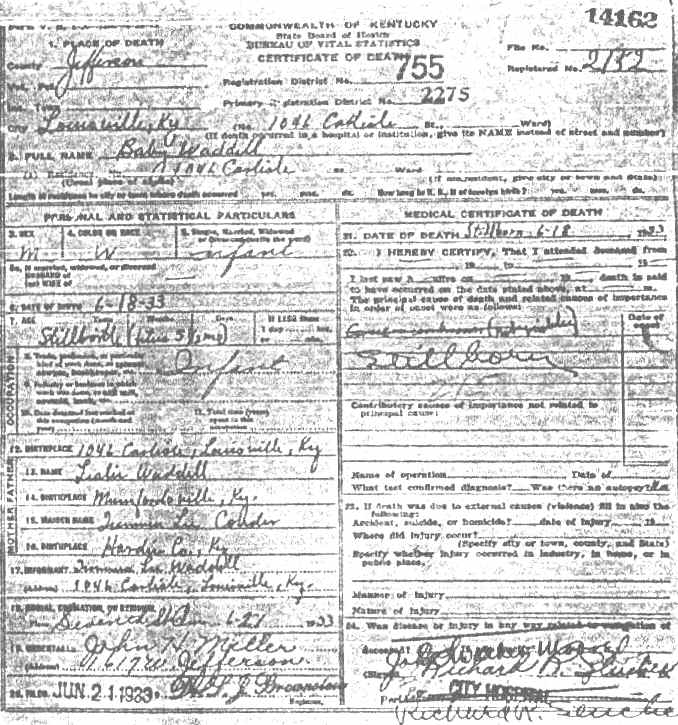 14162
COMMONWEALTH OF KENTUCKY
State Board of Health
BUREAU OF VITAL STATISTICS
CERTIFICATE OF DEATH
File No.
Registered No. 2132
1. PLACE OF DEATH
County Jefferson
Vot. Pct.
Registration District No. 755
Primary Registration District No. 2275
City Louisville, Ky (No. 1046 Carlisle St., Ward)
(If death occurred in a hospital or institution, give its NAME instead of street and number)
2. FULL NAME Baby Waddell
(a) Residence No. 1046 Carlisle St. Ward
(Usual place of abode) (If nonresident, give city or town and State)
Length of residence in city or town where death occurred yrs. mos. ds. How long in U. S., if of foreign birth? yrs. mos. ds.
PERSONAL AND STATISTICAL PARTICULARS
3. SEX
M
4. COLOR OR RACE
W
5. Single, Married, Widowed
or Divorced (write the word)
infant
5a. If married, widowed, or divorced
HUSBAND of
(or) WIFE of
6. DATE OF BIRTH 6-18-33
7. AGE Years Months Days If LESS than
1 day hrs.
or
8. Trade, profession, or particular
kind of work done
Infant
9. Industry or business in which
work was done
10. Date deceased last worked at
this occupation (month and
year)
11. Total time (years)
spent in this
occupation
OCCUPATION
12. BIRTHPLACE 1046 Carlisle, Louisville, Ky
13. NAME Leslie Waddell
14. BIRTHPLACE Munfordsville, Ky.
15. MAIDEN NAME Lee
16. BIRTHPLACE Hardin Co., Ky
MOTHER FATHER
17. INFORMANT Lee Waddell
(Address) 1046 Carlisle, Louisville, Ky.
18. BURIAL, CREMATION, OR REMOVAL
Place 6-21 1933
19. UNDERTAKER John H. Miller
(Address) W Jefferson
20. FILED JUN 21 1933
Registrar.
MEDICAL CERTIFICATE OF DEATH
21. DATE OF DEATH Stillborn 6-18 1933
22. I HEREBY CERTIFY, That I attended deceased from
19 to 19
I last saw h alive on 19 , death is said
to have occurred on the date stated above, at m.
The principal cause of death and related causes of importance
in order of onset were as follows:
Date of
onset
Stillborn
Contributory causes of importance not related to
principal cause:
Name of operation Date of
What test confirmed diagnosis? Was there an autopsy?
23. If death was due to external causes (violence) fill in also the
following:
Accident, suicide, or homicide? date of injury 19
Where did injury occur?
(Specify city or town, county, and State)
Specify whether injury occurred in industry, in home, or in
public place,
Manner of injury
Nature of injury
24. Was disease or injury in any way related to occupation of
deceased?
CITY HOSPITAL